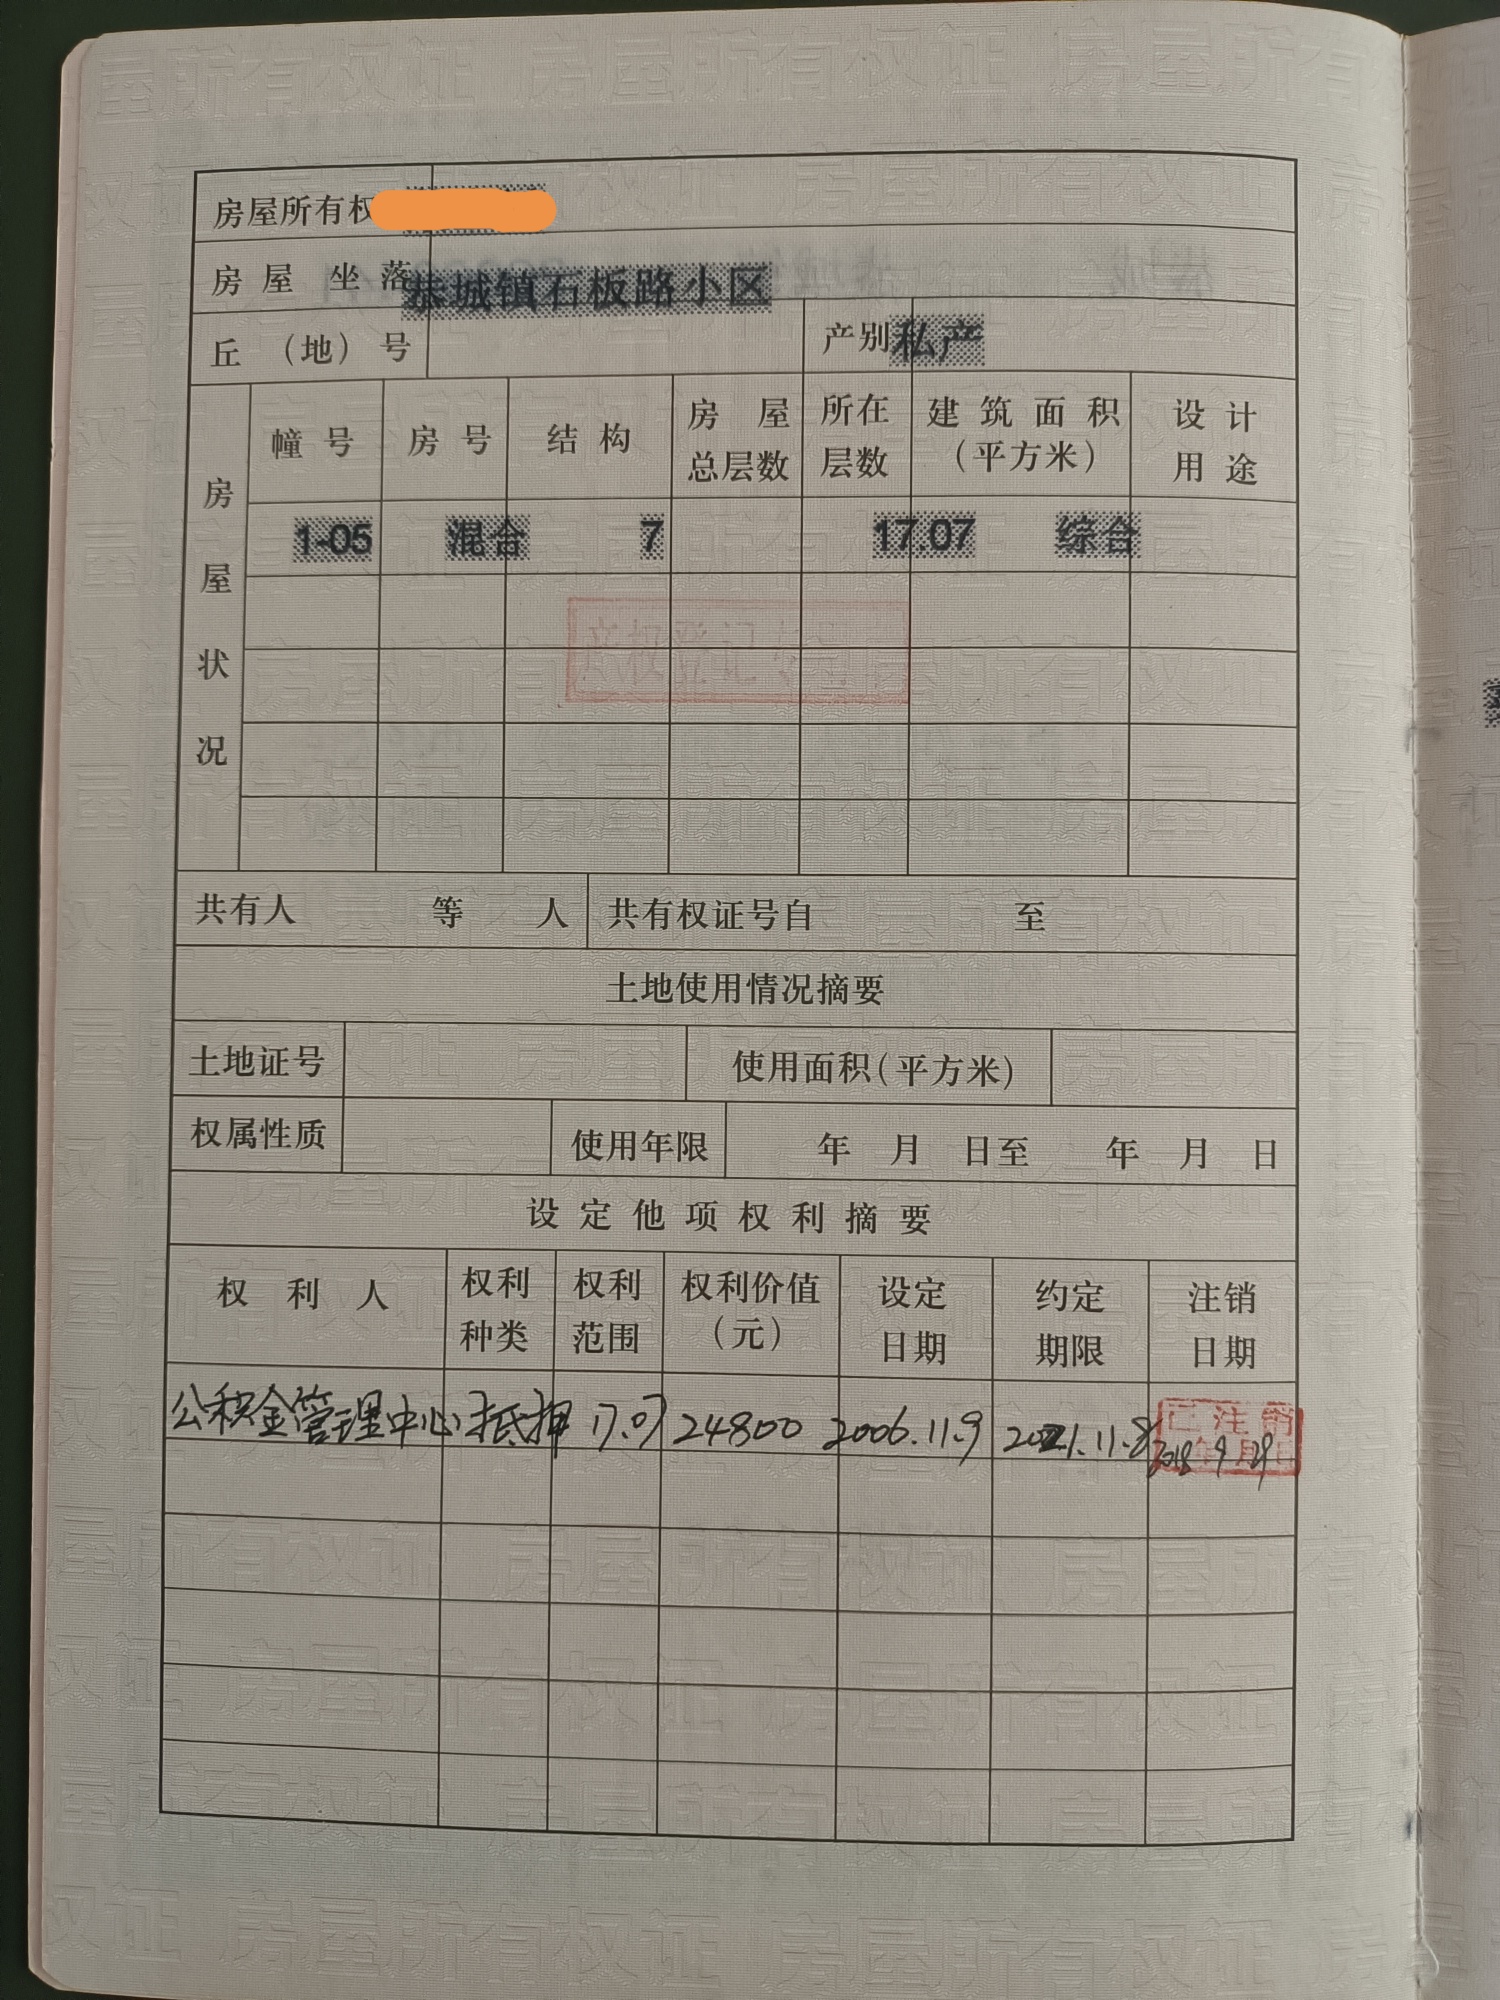 房屋所有权
房屋坐落 恭城镇石板路小区
丘（地）号 产别 私产
房屋状况
幢号 房号 结构 房屋总层数 所在层数 建筑面积（平方米） 设计用途
1-05 混合 7 17.07 综合
共有人 等 人 共有权证号自 至
土地使用情况摘要
土地证号 使用面积(平方米)
权属性质 使用年限 年 月 日至 年 月 日
设定他项权利摘要
权利人 权利种类 权利范围 权利价值（元） 设定日期 约定期限 注销日期
公积金管理中心 抵押 17.07 24800 2006.11.9 2021.11.8 已注销
2018年9月29日